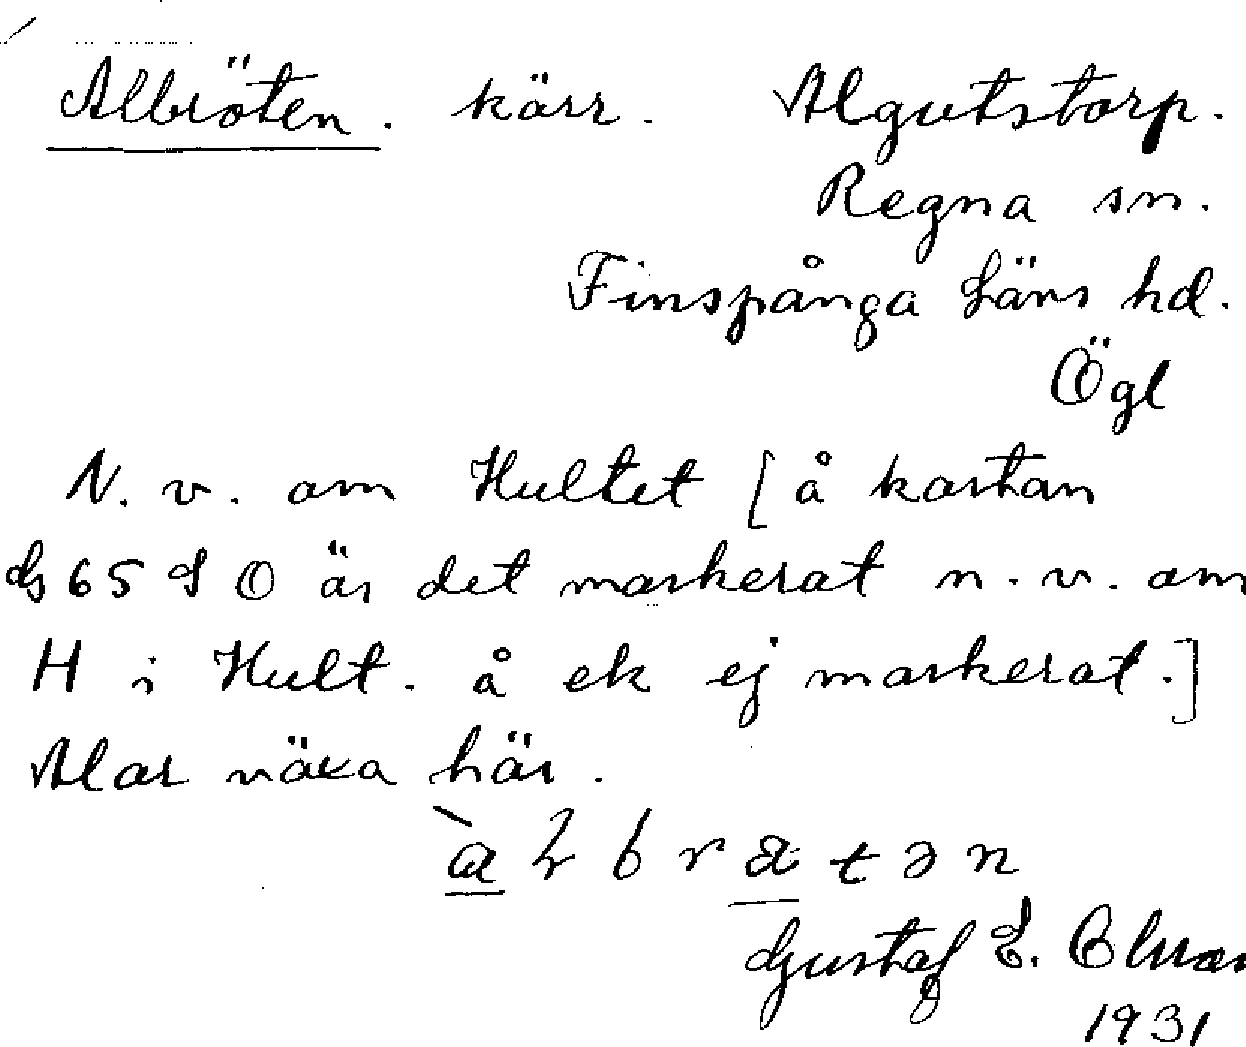 Albröten. kärr. Algutstorp.
Regna sn.
Finspånga läns hd.
Ögl
N. v. om Hultet [å kartan
65 O är det markerat n. v. om
H i Hult. å ek ej markerat.]
Alar växa här.
Gustaf E.
1931